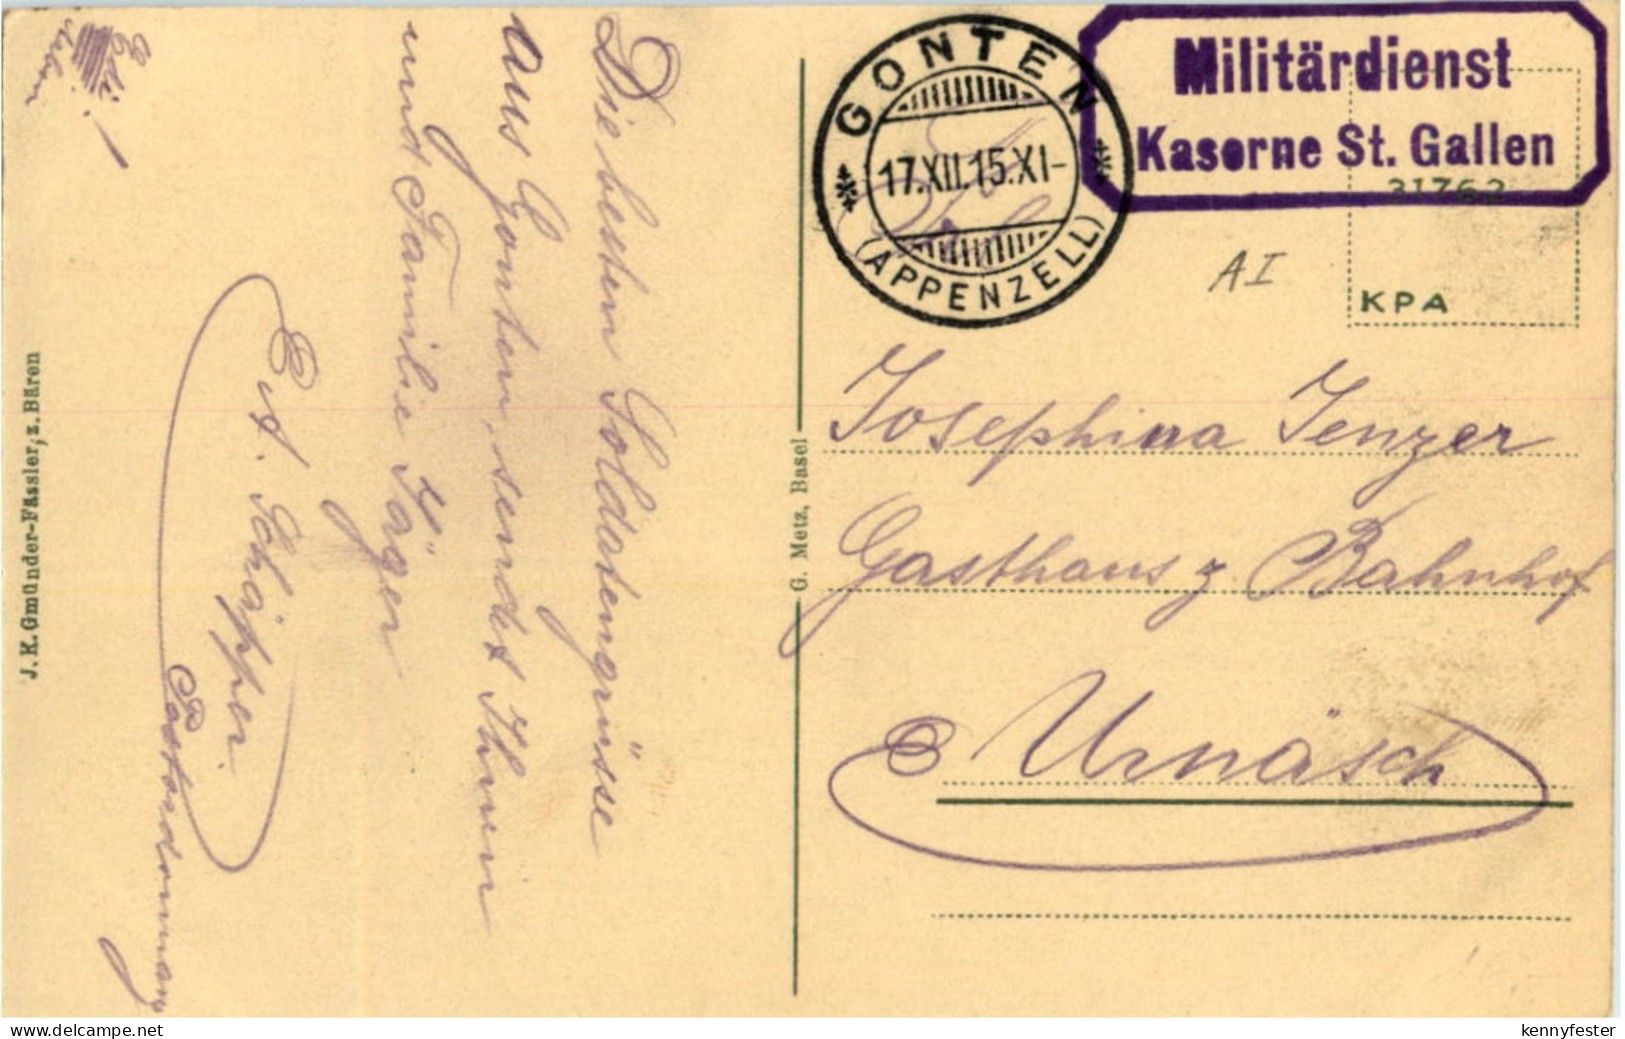 Militärdienst
Kaserne St. Gallen
GONTEN
17.XII.15.XI-
(APPENZELL)
31762
KPA
AI
Josephina Jenzer
Gasthaus z. Bahnhof
Urnäsch
Die besten Soldatengrüsse
Aus Gonten, sendet Ihnen
und Familie Jäger
A. Schäpper
Postordonnanz
G. Metz, Basel
J. K. Gmünder-Fässler, z. Bären
delcampe.net
kennyfester